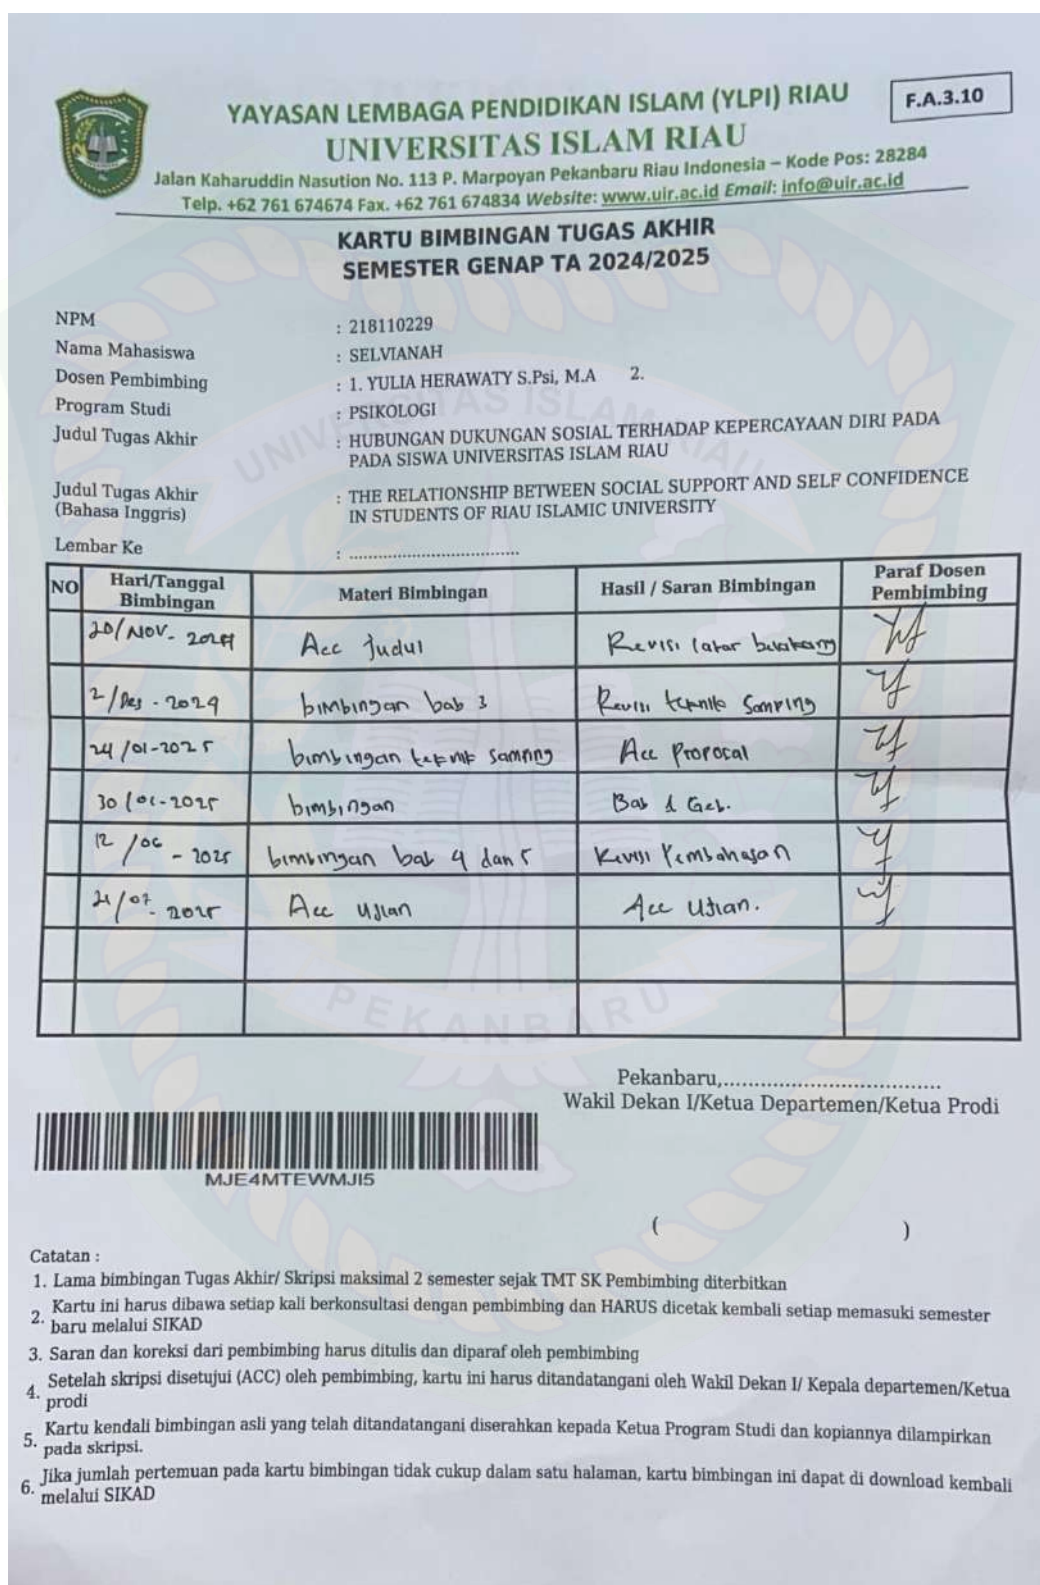 YAYASAN LEMBAGA PENDIDIKAN ISLAM (YLPI) RIAU
F.A.3.10
UNIVERSITAS ISLAM RIAU
Jalan Kaharuddin Nasution No. 113 P. Marpoyan Pekanbaru Riau Indonesia – Kode Pos: 28284
Telp. +62 761 674674 Fax. +62 761 674834 Website: www.uir.ac.id Email: info@uir.ac.id
KARTU BIMBINGAN TUGAS AKHIR
SEMESTER GENAP TA 2024/2025
NPM : 218110229
Nama Mahasiswa : SELVIANAH
Dosen Pembimbing : 1. YULIA HERAWATY S.Psi, M.A 2.
Program Studi : PSIKOLOGI
Judul Tugas Akhir : HUBUNGAN DUKUNGAN SOSIAL TERHADAP KEPERCAYAAN DIRI PADA
PADA SISWA UNIVERSITAS ISLAM RIAU
Judul Tugas Akhir : THE RELATIONSHIP BETWEEN SOCIAL SUPPORT AND SELF CONFIDENCE
(Bahasa Inggris) IN STUDENTS OF RIAU ISLAMIC UNIVERSITY
Lembar Ke : ..................................
NO Hari/Tanggal Bimbingan Materi Bimbingan Hasil / Saran Bimbingan Paraf Dosen Pembimbing
20/NOV- 2024 Acc Judul Revisi latar belakang
2/Des - 2024 bimbingan bab 3 Revisi teknik Samping
24/01-2025 bimbingan teknik samping Acc Proposal
30/ -2025 bimbingan Bab
12/06 - 2025 bimbingan bab 4 dan 5 Revisi Pembahasan
21/07- 2025 Acc Ujian Acc Ujian.
Pekanbaru,...................................
Wakil Dekan I/Ketua Departemen/Ketua Prodi
MJE4MTEWMJI5
( )
Catatan :
1. Lama bimbingan Tugas Akhir/ Skripsi maksimal 2 semester sejak TMT SK Pembimbing diterbitkan
2. Kartu ini harus dibawa setiap kali berkonsultasi dengan pembimbing dan HARUS dicetak kembali setiap memasuki semester
baru melalui SIKAD
3. Saran dan koreksi dari pembimbing harus ditulis dan diparaf oleh pembimbing
4. Setelah skripsi disetujui (ACC) oleh pembimbing, kartu ini harus ditandatangani oleh Wakil Dekan I/ Kepala departemen/Ketua
prodi
5. Kartu kendali bimbingan asli yang telah ditandatangani diserahkan kepada Ketua Program Studi dan kopiannya dilampirkan
pada skripsi.
6. Jika jumlah pertemuan pada kartu bimbingan tidak cukup dalam satu halaman, kartu bimbingan ini dapat di download kembali
melalui SIKAD
UNIVERSITAS ISLAM RIAU
PEKANBARU